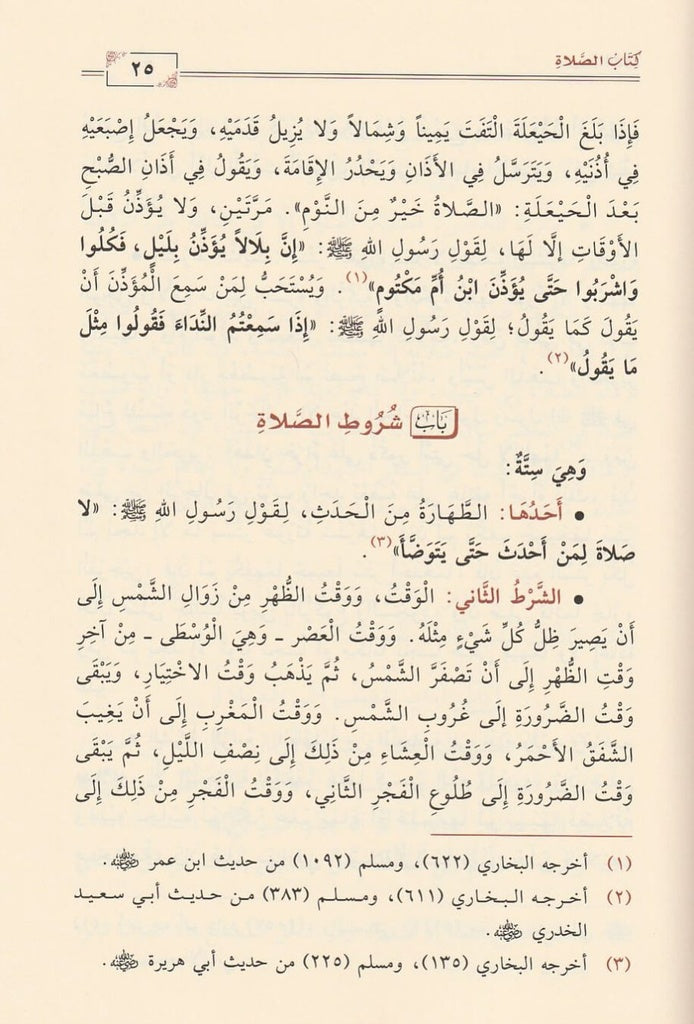 كِتَابُ الصَّلَاةِ
٢٥
فَإِذَا بَلَغَ الْحَيْعَلَةَ الْتَفَتَ يَمِيناً وَشِمَالاً وَلا يُزِيلُ قَدَمَيْهِ، وَيَجْعَلُ إِصْبَعَيْهِ
فِي أُذُنَيْهِ، وَيَتَرَسَّلُ فِي الأَذَانِ وَيَحْدُرُ الإِقَامَةَ، وَيَقُولُ فِي أَذَانِ الصُّبْحِ
بَعْدَ الْحَيْعَلَةِ: «الصَّلاةُ خَيْرٌ مِنَ النَّوْمِ». مَرَّتَيْنِ، وَلا يُؤَذِّنُ قَبْلَ
الأَوْقَاتِ إِلَّا لَهَا، لِقَوْلِ رَسُولِ اللهِ ﷺ: «إِنَّ بِلَالاً يُؤَذِّنُ بِلَيْلٍ، فَكُلُوا
وَاشْرَبُوا حَتَّى يُؤَذِّنَ ابْنُ أُمِّ مَكْتُومٍ»(١). وَيُسْتَحَبُّ لِمَنْ سَمِعَ الْمُؤَذِّنَ أَنْ
يَقُولَ كَمَا يَقُولُ؛ لِقَوْلِ رَسُولِ اللهِ ﷺ: «إِذَا سَمِعْتُمُ النِّدَاءَ فَقُولُوا مِثْلَ
مَا يَقُولُ»(٢).
بَابُ شُرُوطِ الصَّلَاةِ
وَهِيَ سِتَّةٌ:
• أَحَدُهَا: الطَّهَارَةُ مِنَ الْحَدَثِ، لِقَوْلِ رَسُولِ اللهِ ﷺ: «لا
صَلاةَ لِمَنْ أَحْدَثَ حَتَّى يَتَوَضَّأَ»(٣).
• الشَّرْطُ الثَّانِي: الْوَقْتُ، وَوَقْتُ الظُّهْرِ مِنْ زَوَالِ الشَّمْسِ إِلَى
أَنْ يَصِيرَ ظِلُّ كُلِّ شَيْءٍ مِثْلَهُ. وَوَقْتُ الْعَصْرِ ـ وَهِيَ الْوُسْطَى ـ مِنْ آخِرِ
وَقْتِ الظُّهْرِ إِلَى أَنْ تَصْفَرَّ الشَّمْسُ، ثُمَّ يَذْهَبُ وَقْتُ الاخْتِيَارِ، وَيَبْقَى
وَقْتُ الضَّرُورَةِ إِلَى غُرُوبِ الشَّمْسِ. وَوَقْتُ الْمَغْرِبِ إِلَى أَنْ يَغِيبَ
الشَّفَقُ الأَحْمَرُ، وَوَقْتُ الْعِشَاءِ مِنْ ذَلِكَ إِلَى نِصْفِ اللَّيْلِ، ثُمَّ يَبْقَى
وَقْتُ الضَّرُورَةِ إِلَى طُلُوعِ الْفَجْرِ الثَّانِي، وَوَقْتُ الْفَجْرِ مِنْ ذَلِكَ إِلَى
(١) أخرجه البخاري (٦٢٢)، ومسلم (١٠٩٢) من حديث ابن عمر رضي الله عنهما.
(٢) أخرجه البخاري (٦١١)، ومسلم (٣٨٣) من حديث أبي سعيد
الخدري رضي الله عنه.
(٣) أخرجه البخاري (١٣٥)، ومسلم (٢٢٥) من حديث أبي هريرة رضي الله عنه.